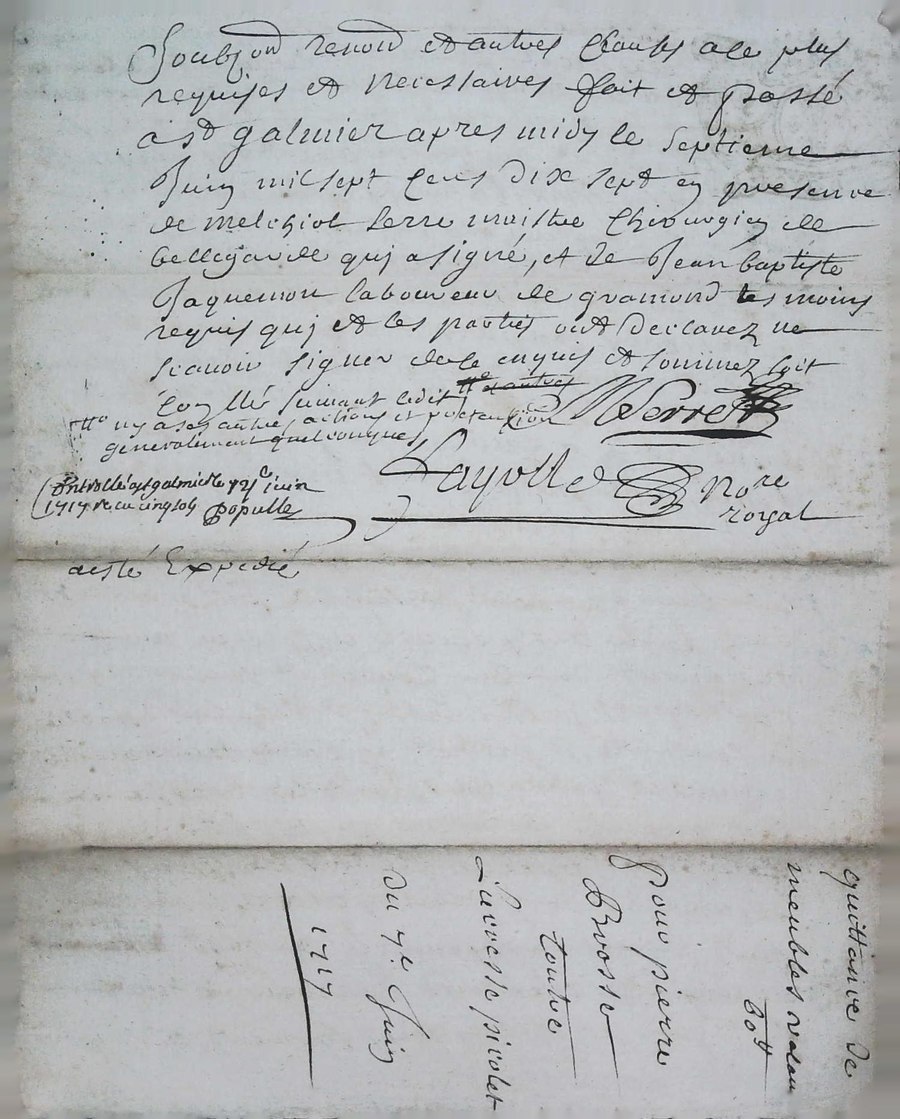 Soubzon renond et autres clauses a ce plus
requises et necessaires fait et passé
a st galmier apres midy le septieme
Juin mil sept cens dix sept en presence
de melchiol serre maistre chirurgien de
bellegarde qui a signé, et de Jean baptiste
Jaquemon laboureur de gramond tesmoins
requis qui et les parties ont declarez ne
scavoir signer de ce enquis et sommez soit
suivant ledit
ny a ses autres actions et pretention
generalement quelconques
MSerre
controllé a st galmier le juin
1717 recu cinq sols populle
Layoll Nore
royal
aesté Expedié
quittance de
meubles
60tt
pour pierre
Brosse
contre
pivolet
du 7e Juin
1717